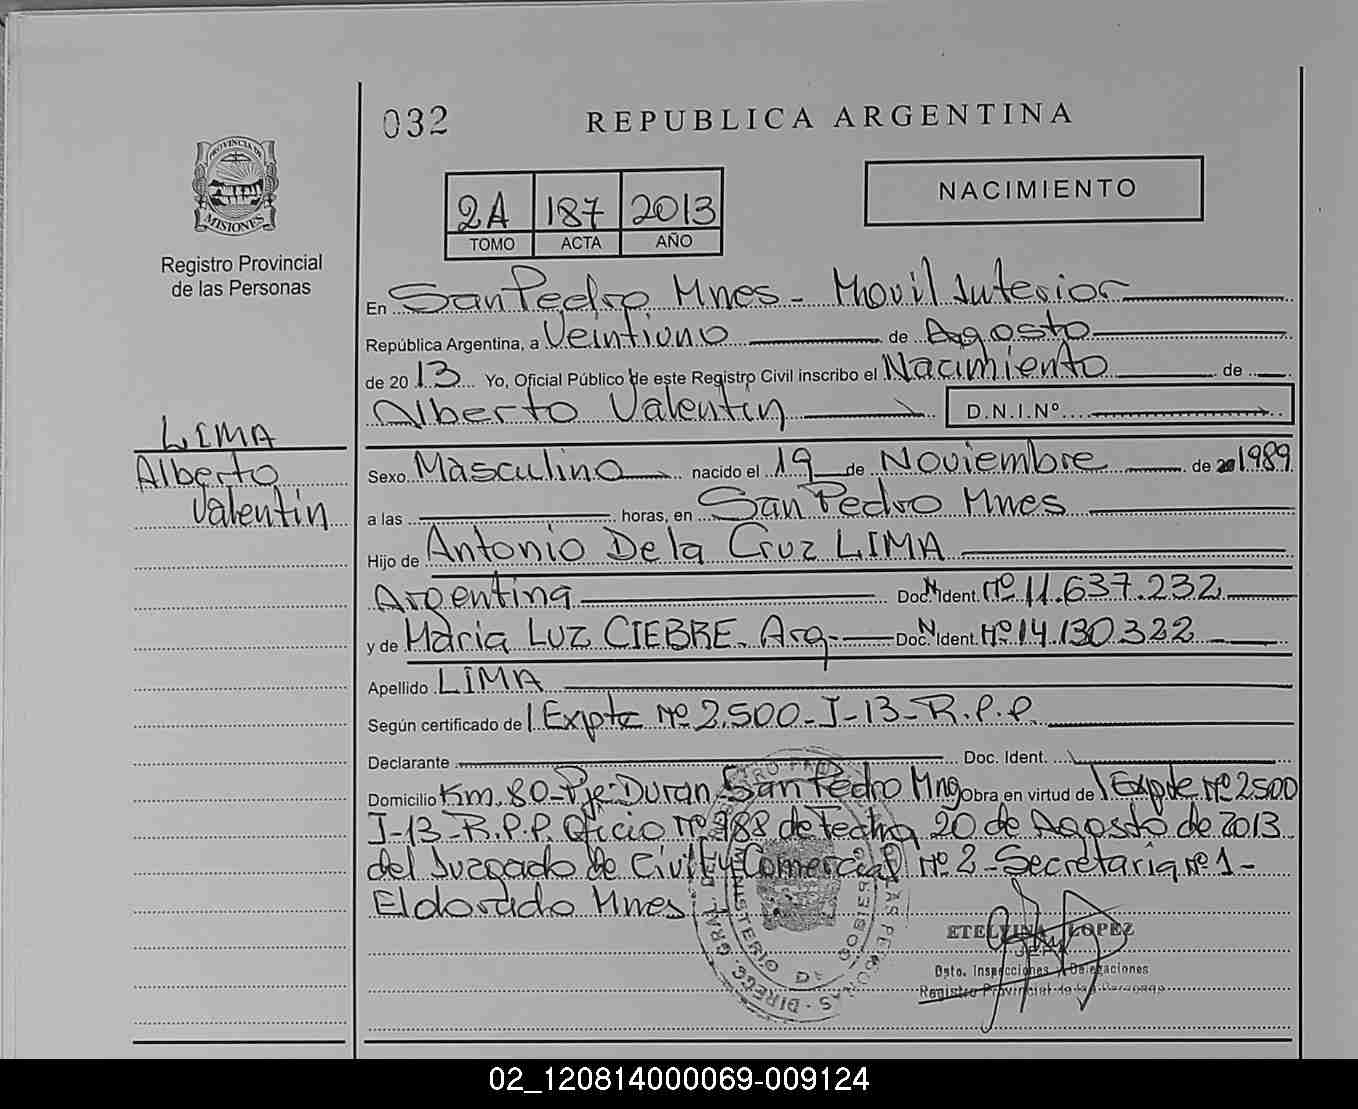 032
REPUBLICA ARGENTINA
PROVINCIA DE
MISIONES
Registro Provincial
de las Personas
2A 187 2013
TOMO ACTA AÑO
NACIMIENTO
En San Pedro Mnes - Movil Interior
República Argentina, a Veintiuno de Agosto
de 2013 Yo, Oficial Público de este Registro Civil inscribo el Nacimiento de
Alberto Valentin D.N.I.Nº
LIMA
Alberto
Valentin
Sexo Masculino nacido el 19 de Noviembre de 1989
a las horas, en San Pedro Mnes
Hijo de Antonio De la Cruz LIMA
Argentina Doc. Ident. Nº 11.637.232
y de Maria LUZ CIEBRE. Arg. Doc. Ident. Nº 14.130.322
Apellido LIMA
Según certificado de Expte Nº 2.500-I-13-R.P.P.
Declarante Doc. Ident.
Domicilio Km. 80-Pje: Duran San Pedro Mnes Obra en virtud de Expte Nº 2500
I-13-R.P.P. Oficio Nº 988 de Fecha 20 de Agosto de 2013
del Juzgado de Civil y Comercial Nº 2 - Secretaria Nº 1 -
Eldorado Mnes
ETELVINA LOPEZ
JEFA
Dpto. Inspecciones y Delegaciones
Registro Provincial de las Personas
MINISTERIO DE GOBIERNO
02_120814000069-009124